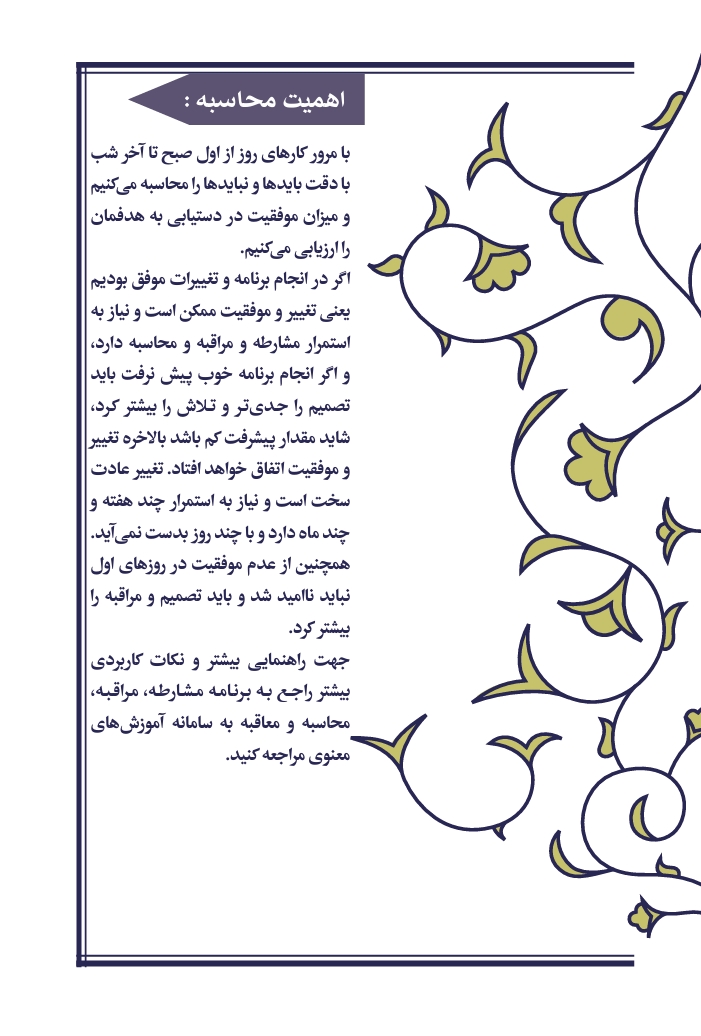 اهمیت محاسبه :
با مرور کارهای روز از اول صبح تا آخر شب
با دقت بایدها و نبایدها را محاسبه می‌کنیم
و میزان موفقیت در دستیابی به هدفمان
را ارزیابی می‌کنیم.
اگر در انجام برنامه و تغییرات موفق بودیم
یعنی تغییر و موفقیت ممکن است و نیاز به
استمرار مشارطه و مراقبه و محاسبه دارد،
و اگر انجام برنامه خوب پیش نرفت باید
تصمیم را جدی‌تر و تلاش را بیشتر کرد،
شاید مقدار پیشرفت کم باشد بالاخره تغییر
و موفقیت اتفاق خواهد افتاد. تغییر عادت
سخت است و نیاز به استمرار چند هفته و
چند ماه دارد و با چند روز بدست نمی‌آید.
همچنین از عدم موفقیت در روزهای اول
نباید ناامید شد و باید تصمیم و مراقبه را
بیشتر کرد.
جهت راهنمایی بیشتر و نکات کاربردی
بیشتر راجع به برنامه مشارطه، مراقبه،
محاسبه و معاقبه به سامانه آموزش‌های
معنوی مراجعه کنید.